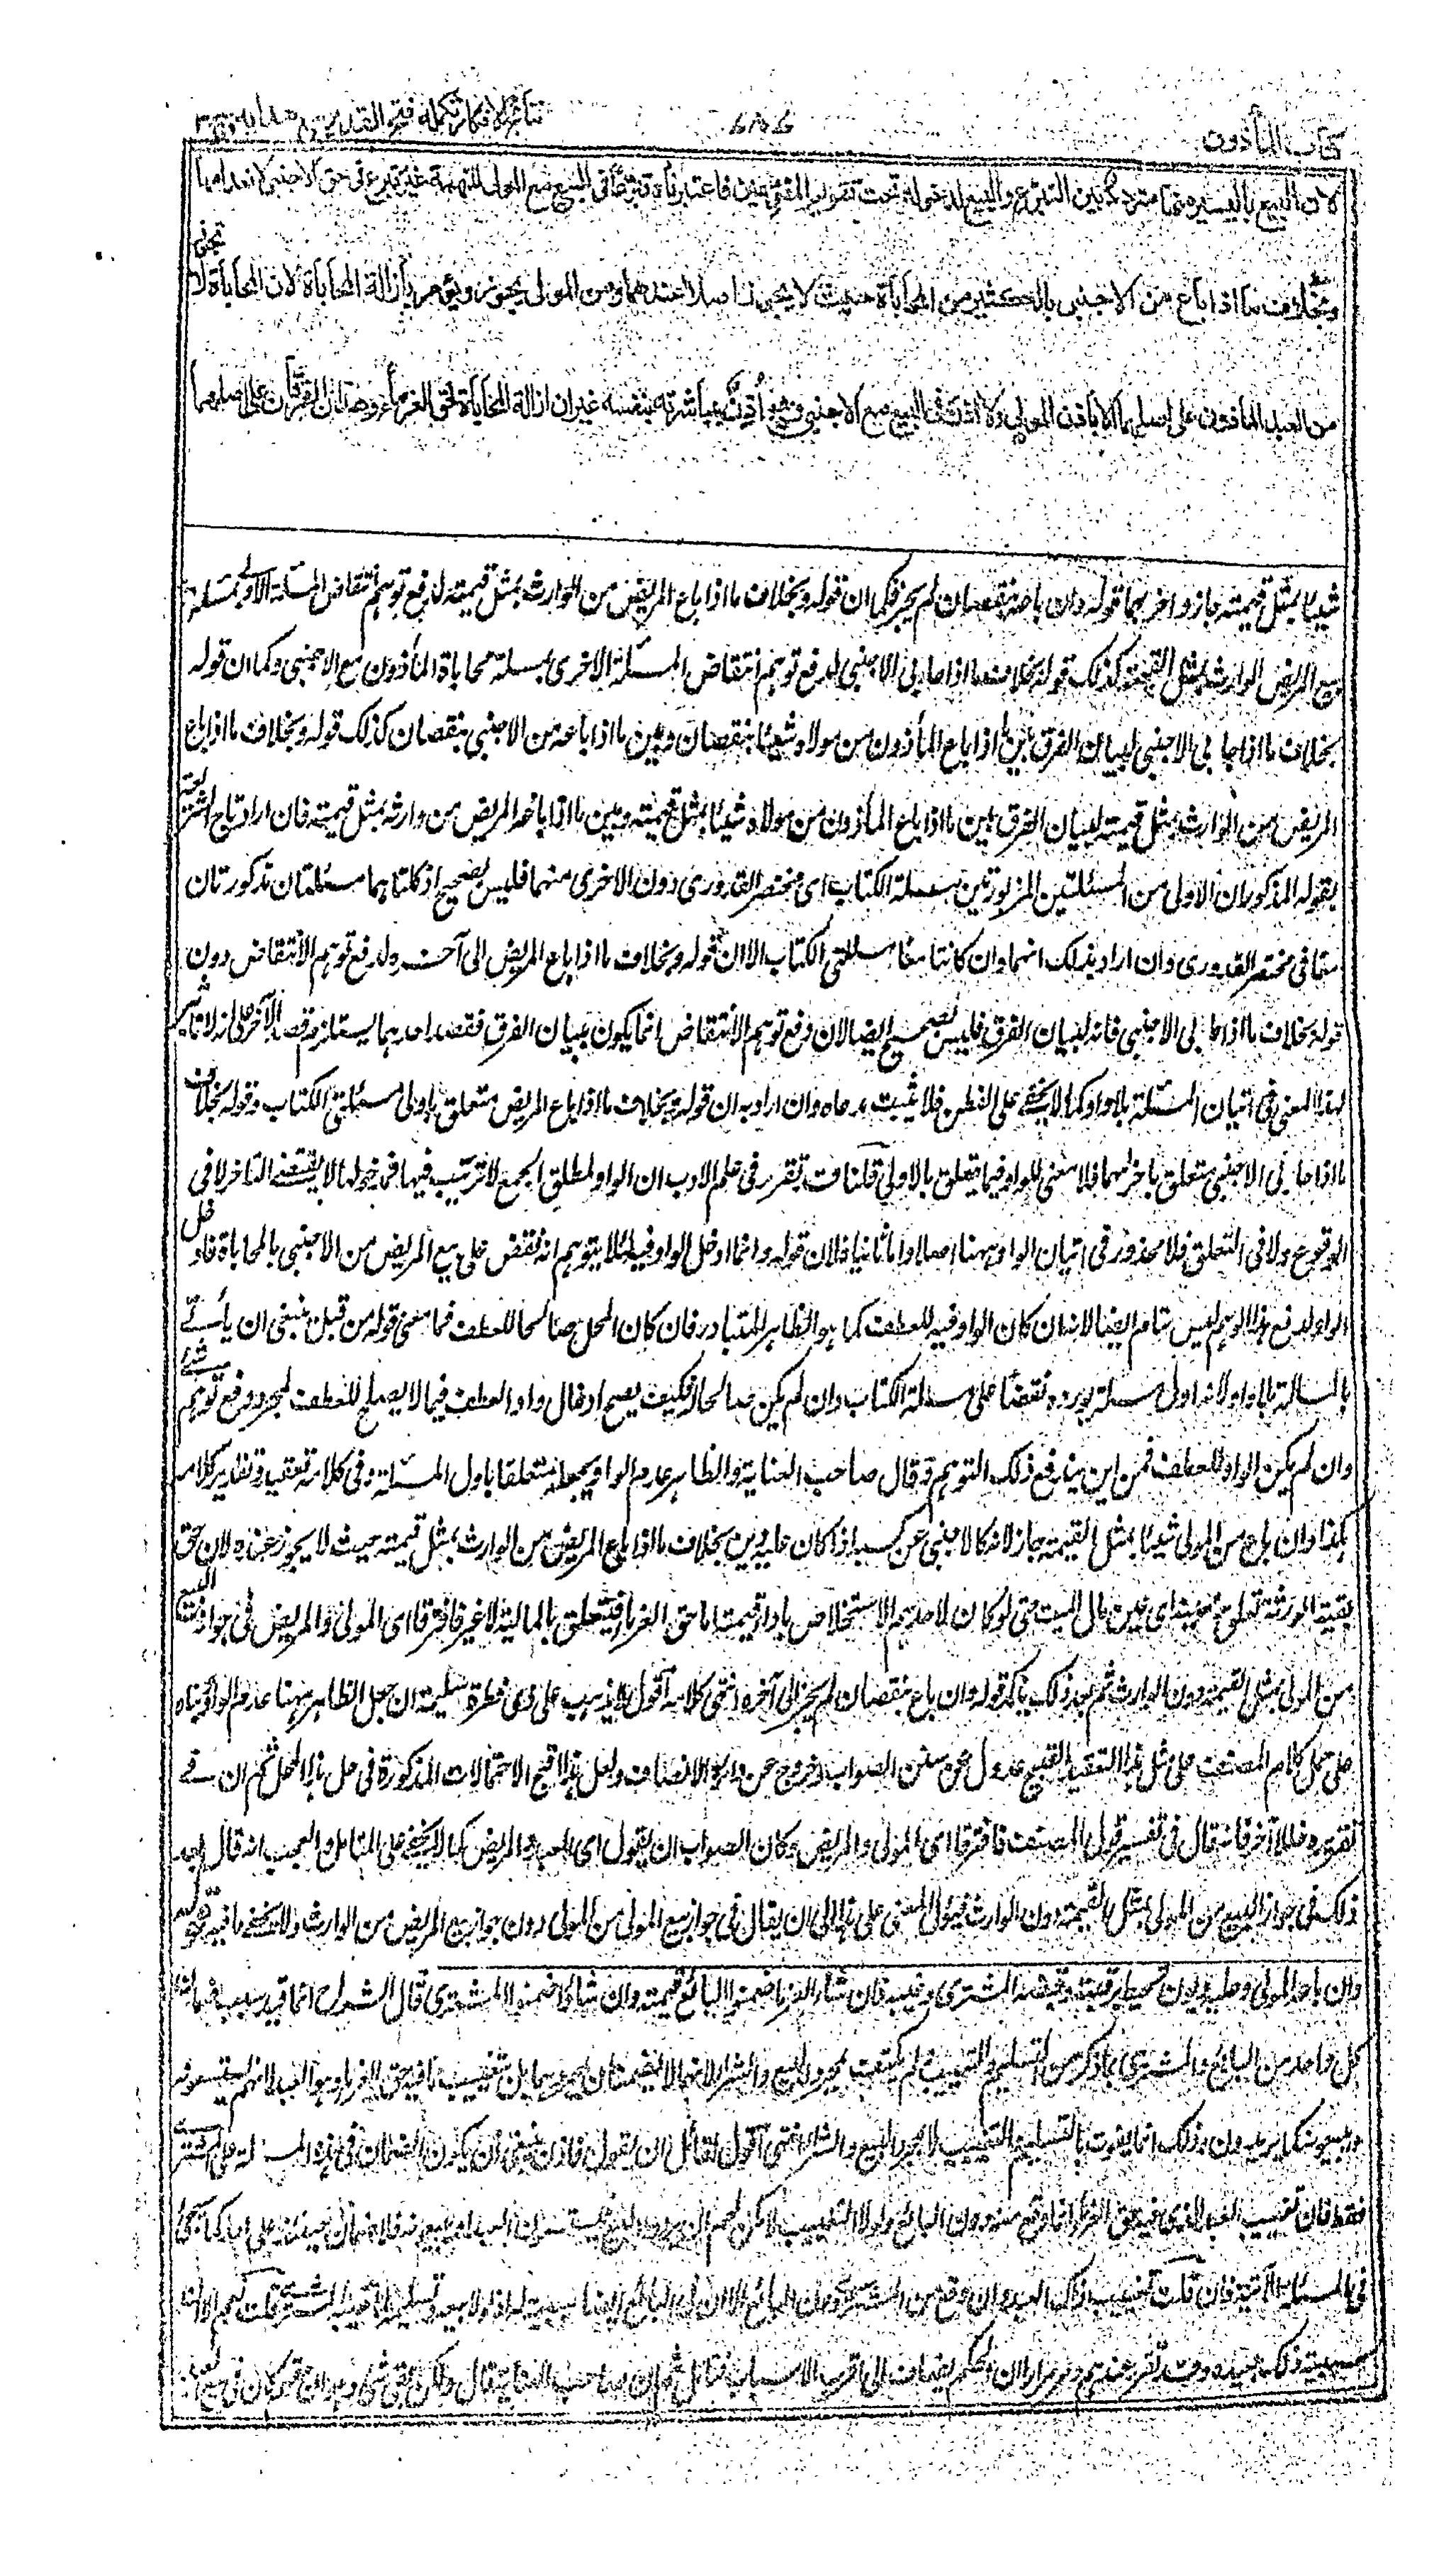 كتاب المأذون
نتائج الافكار تكملة فتح القدير مع هداية
لان البيع باليسير منها متردد بين التبرع والبيع لدخوله تحت تقويم المقومين فاعتبرناه تبرعا في البيع مع المولى للتهمة غير تبرع في حق الاجنبي لانعدامها
وبخلاف ما اذا باع من الاجنبي بالكثير من المحاباة حيث لا يجوز اصلا عندهما ومن المولى يجوز ويؤمر بازالة المحاباة لان المحاباة لا تجوز
من العبد المأذون على اصلهما الا باذن المولى ولا اذن في البيع مع الاجنبي وهو اذن بمباشرته بنفسه غير ان ازالة المحاباة لحق الغرماء وهذان الفرقان على اصلهما
شيئا بمثل قيمته جاز وآخرهما قوله وان باعه بنقصان لم يجز فكما ان قوله وبخلاف ما اذا باع المريض من الوارث بمثل قيمته لدفع توهم انتقاض المسئلة الاولى بمسئلة
بيع المريض الوارث بمثل القيمة كذلك قوله بخلاف ما اذا حابى الاجنبي لدفع توهم انتقاض المسئلة الاخرى بمسئلة محاباة المأذون مع الاجنبي وكما ان قوله
بخلاف ما اذا حابى الاجنبي لبيان الفرق بين ما اذا باع المأذون من مولاه شيئا بنقصان وبين ما اذا باعه من الاجنبي بنقصان كذلك قوله وبخلاف ما اذا باع
المريض من الوارث بمثل قيمته لبيان الفرق بين ما اذا باع المأذون من مولاه شيئا بمثل قيمته وبين ما اذا باعه المريض من وارثه بمثل قيمته فان اراد تاج الشريعة
بقوله المذكور ان الاولى من المسئلتين المزبورتين مسئلة الكتاب اى مختصر القدورى دون الاخرى منهما فليس بصحيح اذ كلتاهما مسئلتان مذكورتان
معا في مختصر القدورى وان اراد بذلك انهما وان كانتا معا مسئلتى الكتاب الا ان قوله وبخلاف ما اذا باع المريض الى آخره لدفع توهم الانتقاض دون
قوله بخلاف ما اذا حابى الاجنبي فانه لبيان الفرق فليس بصحيح ايضا لان دفع توهم الانتقاض انما يكون ببيان الفرق فقصد احدهما يستلزم قصد الآخر على انه لا تأثير
لهذا المعنى في اتيان المسئلة بالواو كما لا يخفى على الفطن فلا يثبت مدعاه وان اراد به ان قوله وبخلاف ما اذا باع المريض متعلق باولى مسئلتى الكتاب وقوله بخلاف
ما اذا حابى الاجنبي متعلق باخراهما فلا معنى للواو فيما يتعلق بالاولى قلنا قد تقرر في علم الادب ان الواو لمطلق الجمع لا ترتيب فيها فدخولها لا يقتضى التأخر لا في
الوقوع ولا في التعلق فلا محذور في اتيان الواو ههنا اصلا واما ثانيا فلان قوله وانما ادخل الواو فيه لئلا يتوهم انه نقض على بيع المريض من الاجنبي بالمحاباة فادخل
الواو لدفع هذا الوهم ليس بتام ايضا لانه ان كان الواو فيه للعطف كما هو الظاهر المتبادر فان كان المحل صالحا للعطف فما معنى قوله من قبل ينبغى ان يأتى
بالمسئلة بلا واو لانه اول مسئلة يورده نقضا على مسئلة الكتاب وان لم يكن صالحا له فكيف يصح ادخال واو العطف فيما لا يصلح للعطف لمجرد دفع توهم شئ
وان لم يكن الواو للعطف فمن اين يندفع ذلك التوهم وقال صاحب العناية والظاهر عدم الواو ويجعله متعلقا باول المسئلة وفى كلامه تعقيد وتقدير كلامه
هكذا وان باع من المولى شيئا بمثل القيمة جاز لانه كالاجنبي عن كسبه اذا كان عليه دين بخلاف ما اذا باع المريض من الوارث بمثل قيمته حيث لا يجوز عنده لان حق
بقية الورثة تعلق بعينه اى عين مال الميت حتى لو كان لاحدهم الاستخلاص باداء قيمته اما حق الغرماء فيتعلق بالمالية لا غير فافترقا اى المولى والمريض في جواز البيع
من المولى بمثل القيمة دون الوارث ثم بعد ذلك يذكر قوله وان باع بنقصان لم يجز الى آخره انتهى كلامه اقول لا يذهب على ذى فطرة سليمة ان جعل الظاهر ههنا عدم الواو بناء
على حمل كلام المصنف على مثل هذا التعقيد القبيح عدول عن سنن الصواب وخروج عن دائرة الانصاف ولعل هذا اقبح الاحتمالات المذكورة في حل هذا المحل ثم ان في
تقريره خللا آخر فانه قال في تفسير قول المصنف فافترقا اى المولى والمريض وكان الصواب ان يقول اى العبد والمريض كما لا يخفى على المتأمل والعجب انه قال بعد
ذلك في جواز البيع من المولى بمثل القيمة دون الوارث فيئول المعنى على هذا الى ان يقال في جواز بيع المولى من المولى دون جواز بيع المريض من الوارث ولا يخفى ما فيه قوله
وان باعه المولى وعليه ديون تحيط برقبته وقبضه المشترى وغيبه فان شاء الغرماء ضمنوا البائع قيمته وان شاؤا ضمنوا المشترى قال الشراح انما قيد بسبب ضمان
كل واحد من البائع والمشترى بما ذكر من التسليم والتغييب ولم يكتف بمجرد البيع والشراء لانهما لا يضمنان بمجردهما بل بتغييب ما فيه حق الغرماء وهو العبد لانهم يستسعونه
ويبيعونه كما يريدون وذلك انما يفوت بالتسليم والتغييب لا بمجرد البيع والشراء انتهى اقول لقائل ان يقول فاذن ينبغى ان يكون الضمان في هذه المسئلة على المشترى
فقط فان تغييب العبد الذى فيه حق الغرماء انما وقع منه دون البائع ولولا التغييب لامكن لهم
في المسئلة الآتية فان قلت تغييب ذلك العبد وان وقع من المشترى دون البائع الا ان
ذلك بعيده وقد تقرر عندهم وغير مرار ان الحكم يضاف الى اقرب الاسباب فتأمل ثم ان صاحب العناية قال ولكن بقى شئ وهو ان